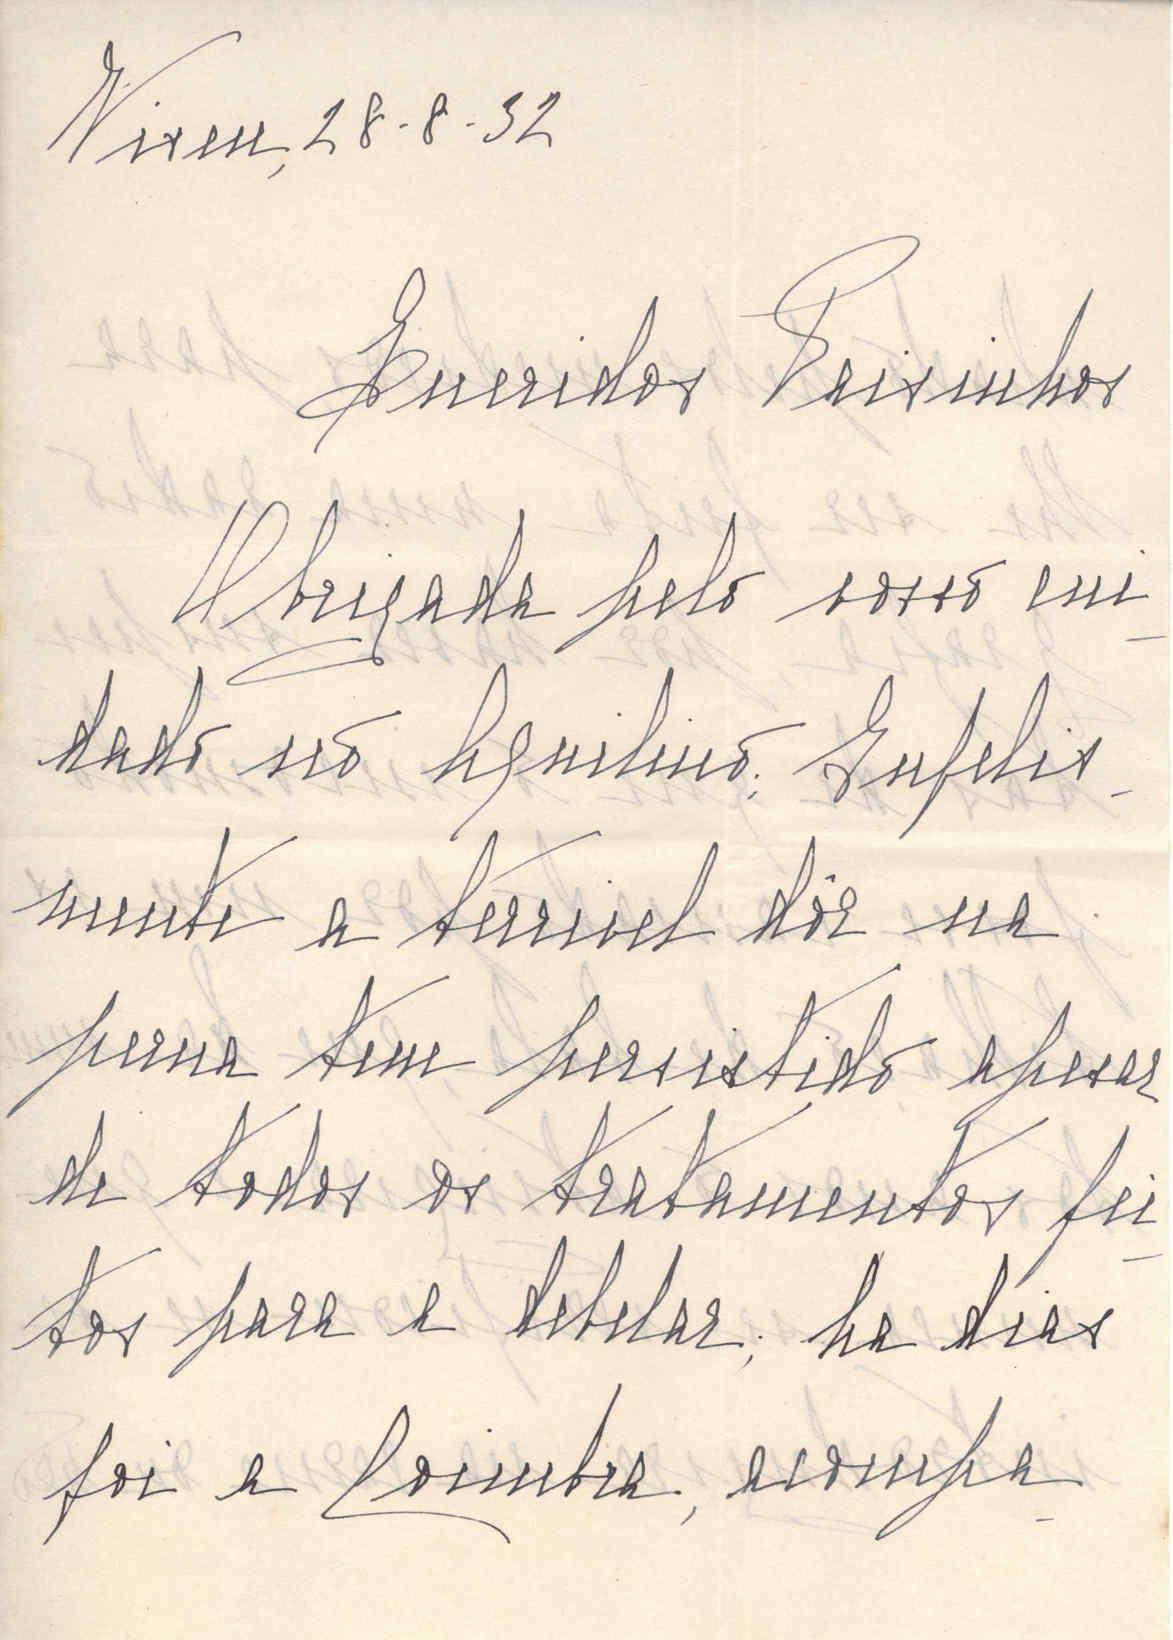 Vizeu, 28-8-32
Queridos Paisinhos
Obrigada pelo vosso cui-
dado no Aquilino. Infeliz-
mente a terrivel dôr na
perna tem persistido apezar
de todos os tratamentos fei-
tos para a debelar; ha dias
foi a Coimbra, acompa-